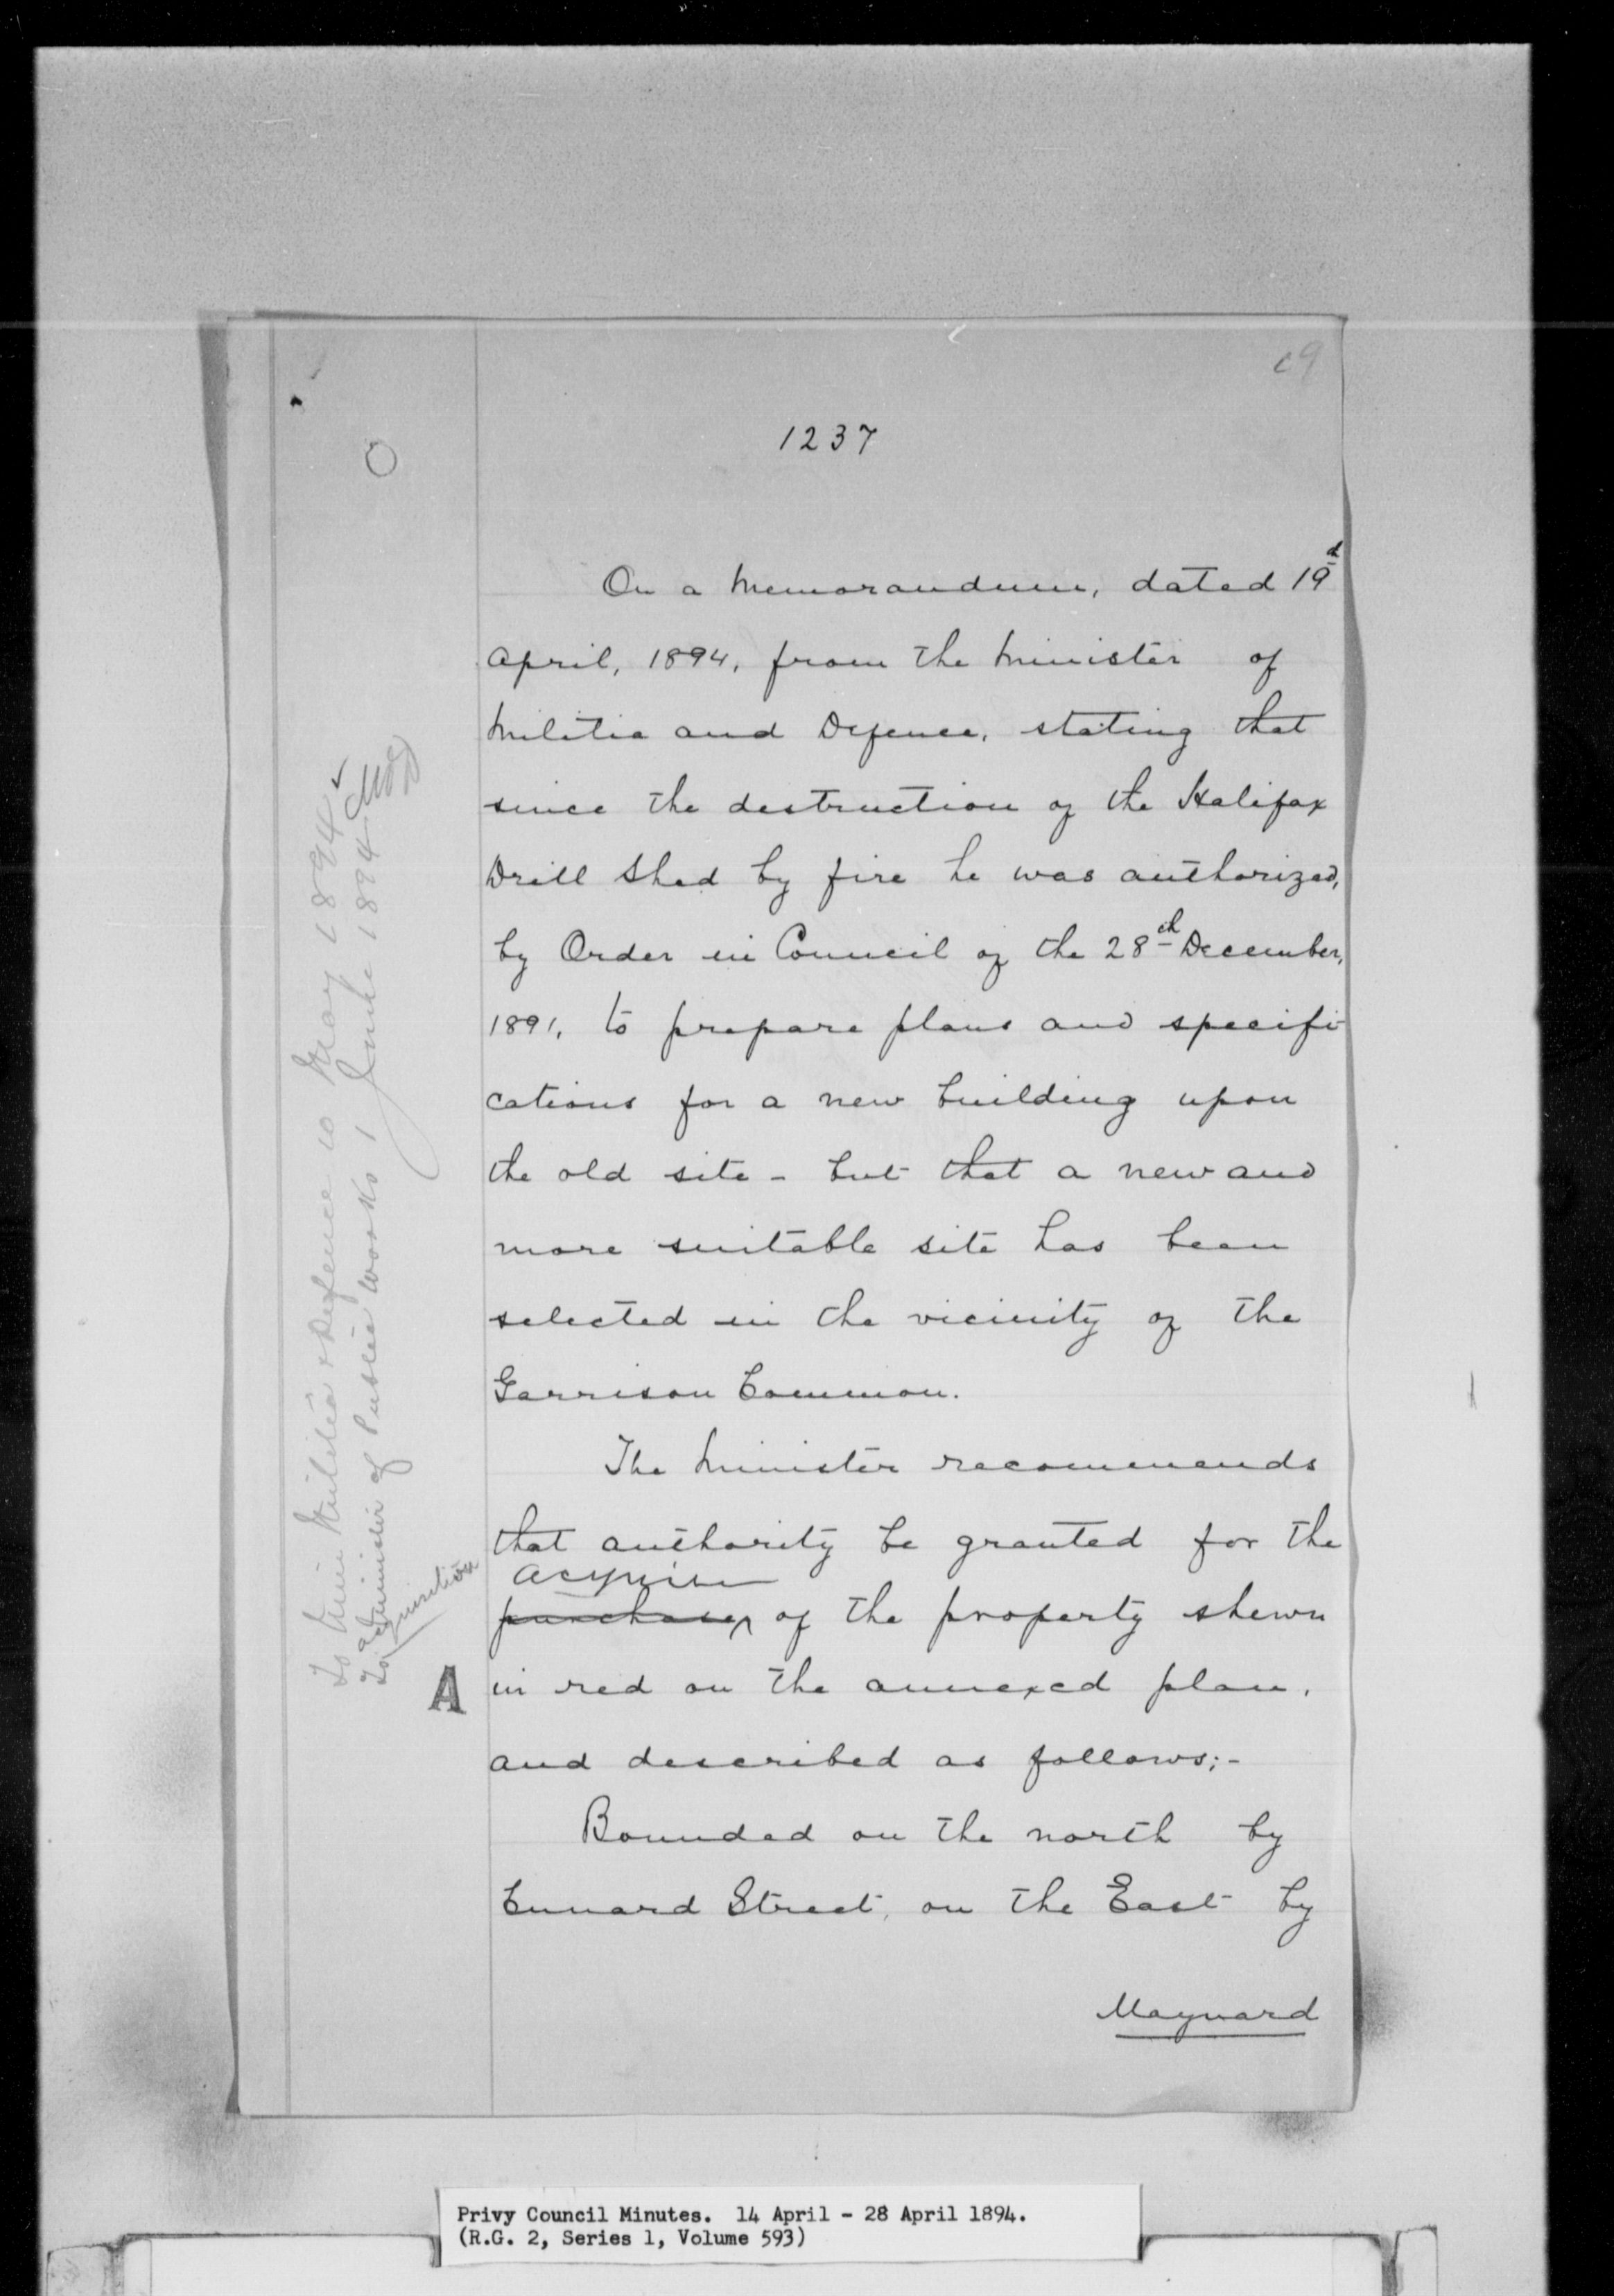 c9
1237
On a Memorandum, dated 19th
April, 1894, from the Minister of
Militia and Defence, stating that
since the destruction of the Halifax
Drill Shed by fire he was authorized,
by Order in Council of the 28th December,
1891, to prepare plans and specifi-
cations for a new building upon
the old site - but that a new and
more suitable site has been
selected in the vicinity of the
Garrison Common.
The Minister recommends
that authority be granted for the
acquisition
purchase of the property shewn
A in red on the annexed plan,
and described as follows;-
Bounded on the north by
Cunard Street, on the East by
Maynard
To Min Militia & Defence 10 May 1894
To a/Minister of Public Works 1 June 1894
acquisition
Privy Council Minutes. 14 April - 28 April 1894.
(R.G. 2, Series 1, Volume 593)